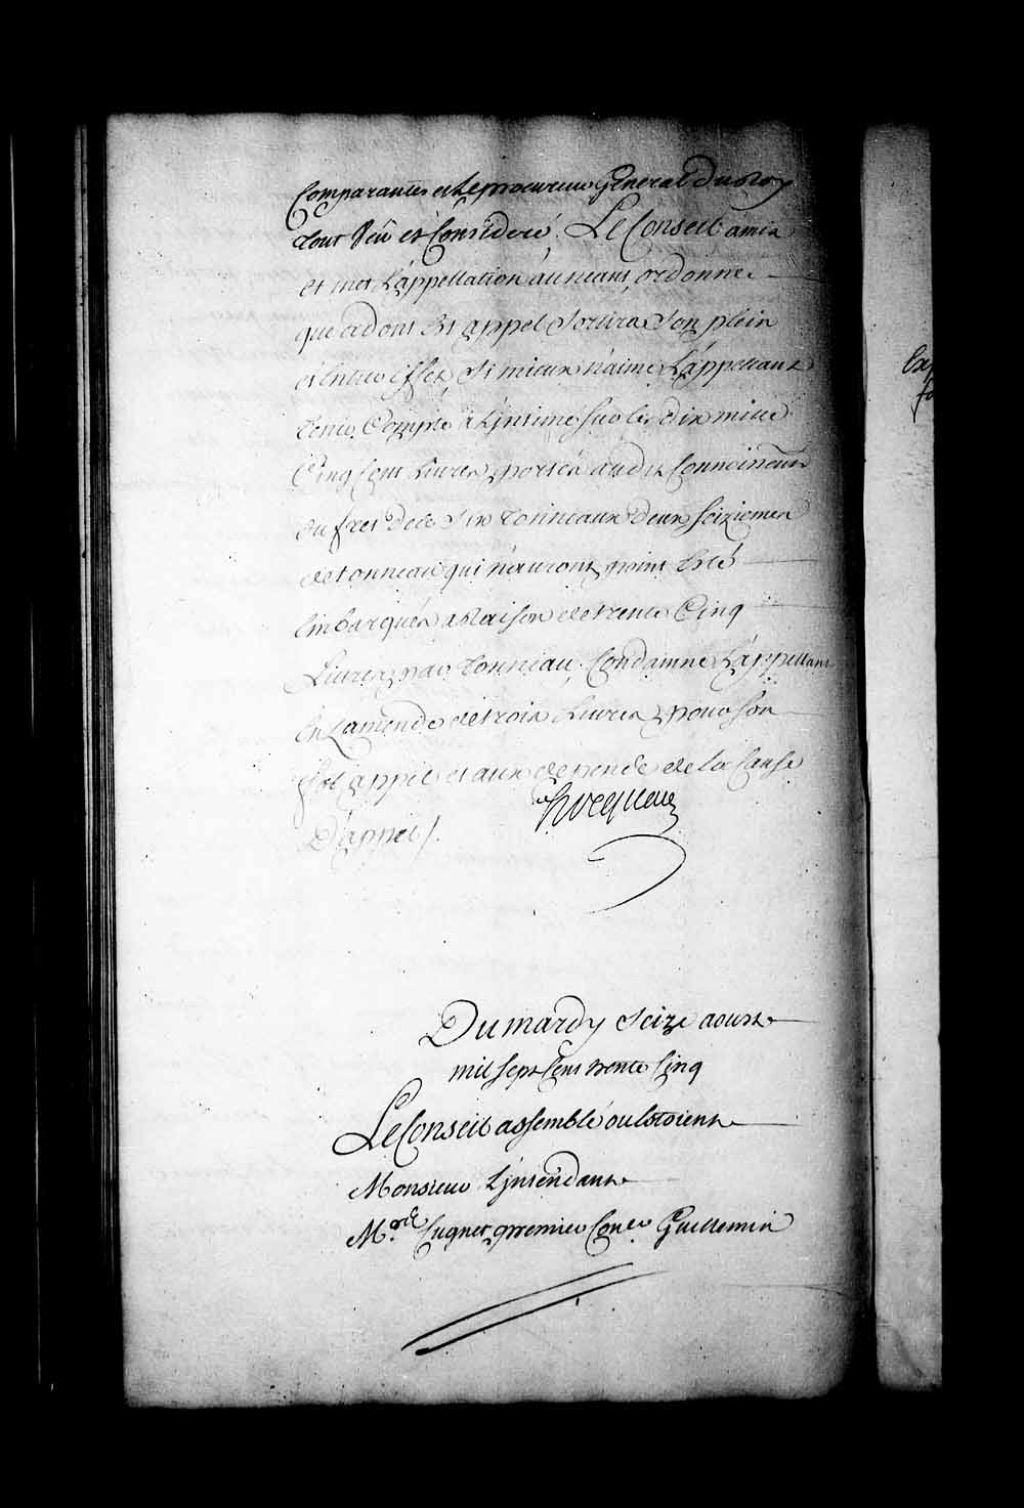 Comparantes et Le procureur General Du Roy
tout Veu et Consideré, Le Conseil a mis
et met L'appellation au neant, ordonne
que ce dont Est appel Sortira Son plein
et Entier Effet, Si mieux n'aime L'appellant
tenir Compte à L'intimé Sur les dix mille
Cinq Cent Livres portés audit Connoissement
du fret de Six tonneaux deux Seiziemes
de tonneau qui n'auront point Esté
Embarqués a Raison de trente Cinq
Livres par tonneau, Condamne L'appellant
En Lamende de trois Livres pour Son
fol appel et aux depends de la Cause
D'appel /.
Hocquart
Du mardy Seize aoust
mil Sept Cent trente Cinq
Le Conseil assemblé ou Estoient
Monsieur L'jntendant
M.re Cugnet premier Con.er Guillemin